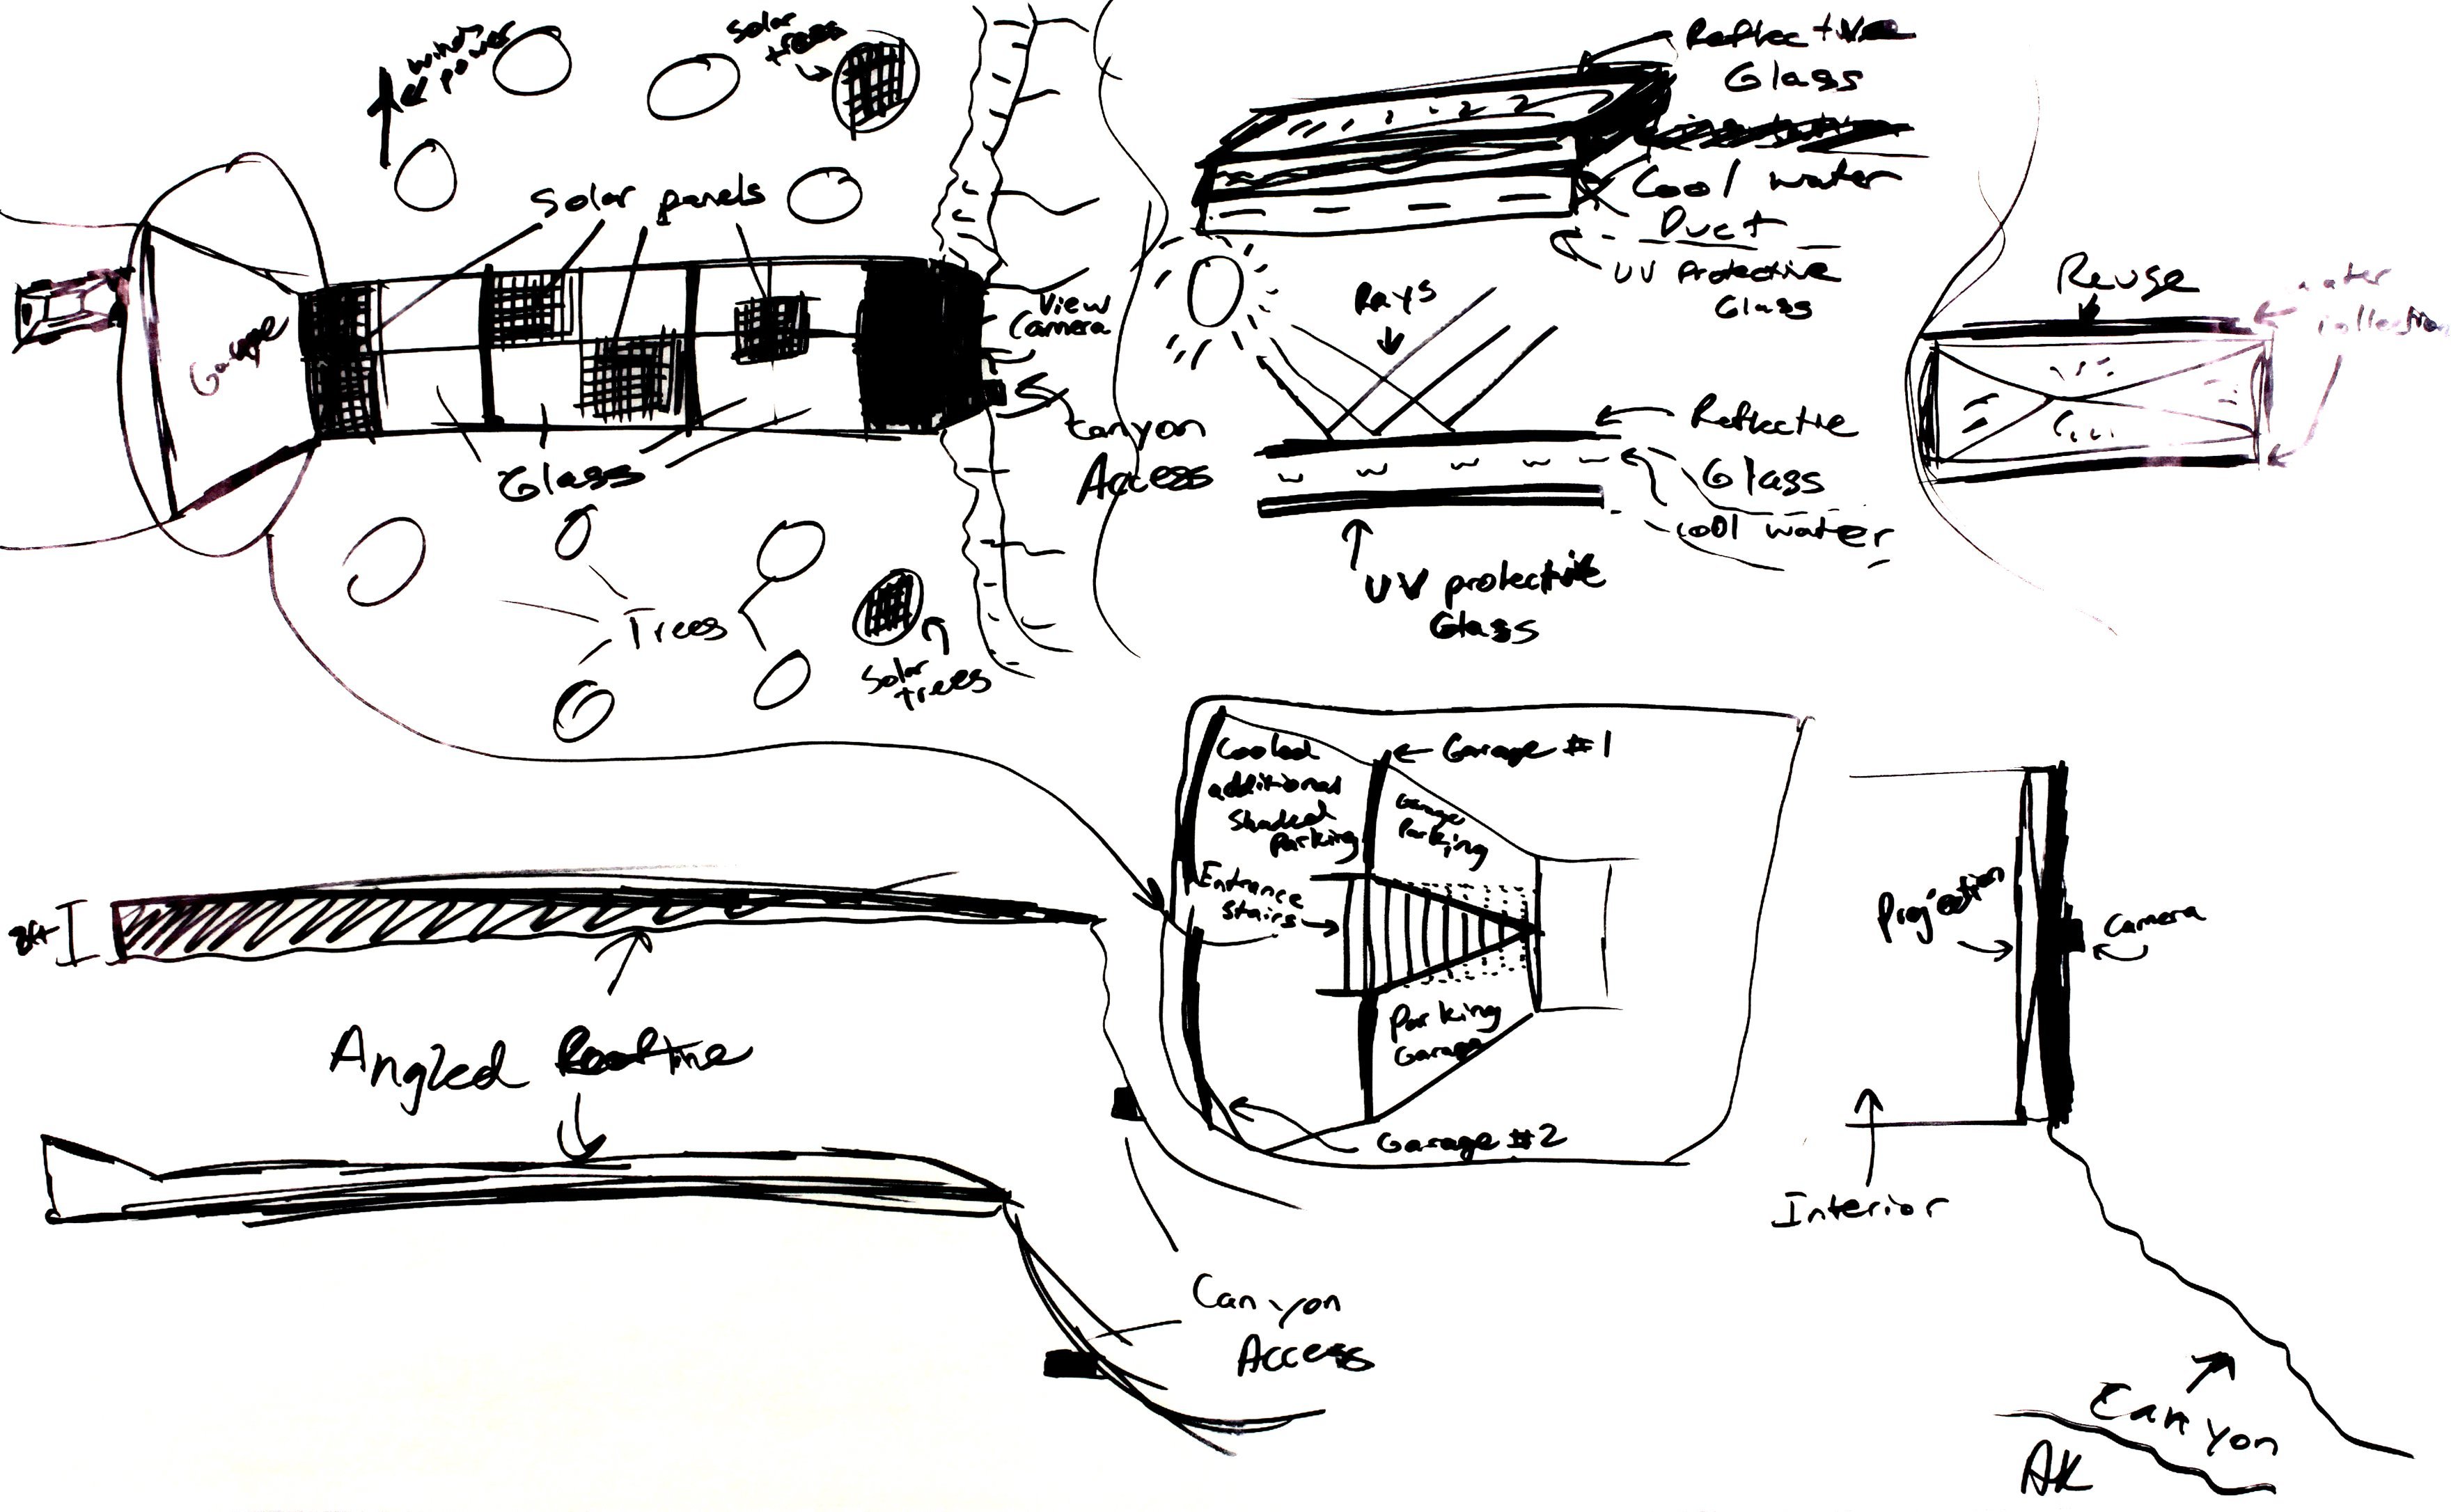 wind
power
solar
trees
solar panels
Garage
View
Camera
Canyon
Access
Glass
Trees
solar
trees
Reflective
Glass
Cool water
Duct
UV Protective
Glass
Rays
Reflective
Glass
cool water
UV protective
Glass
Reuse
water
collection
Cooled
additional
Shaded
Parking
Garage #1
Garage
Parking
Entrance
Stairs
Parking
Garage
Garage #2
8ft
Angled Roofline
Canyon
Access
Projection
Camera
Interior
Canyon
AK